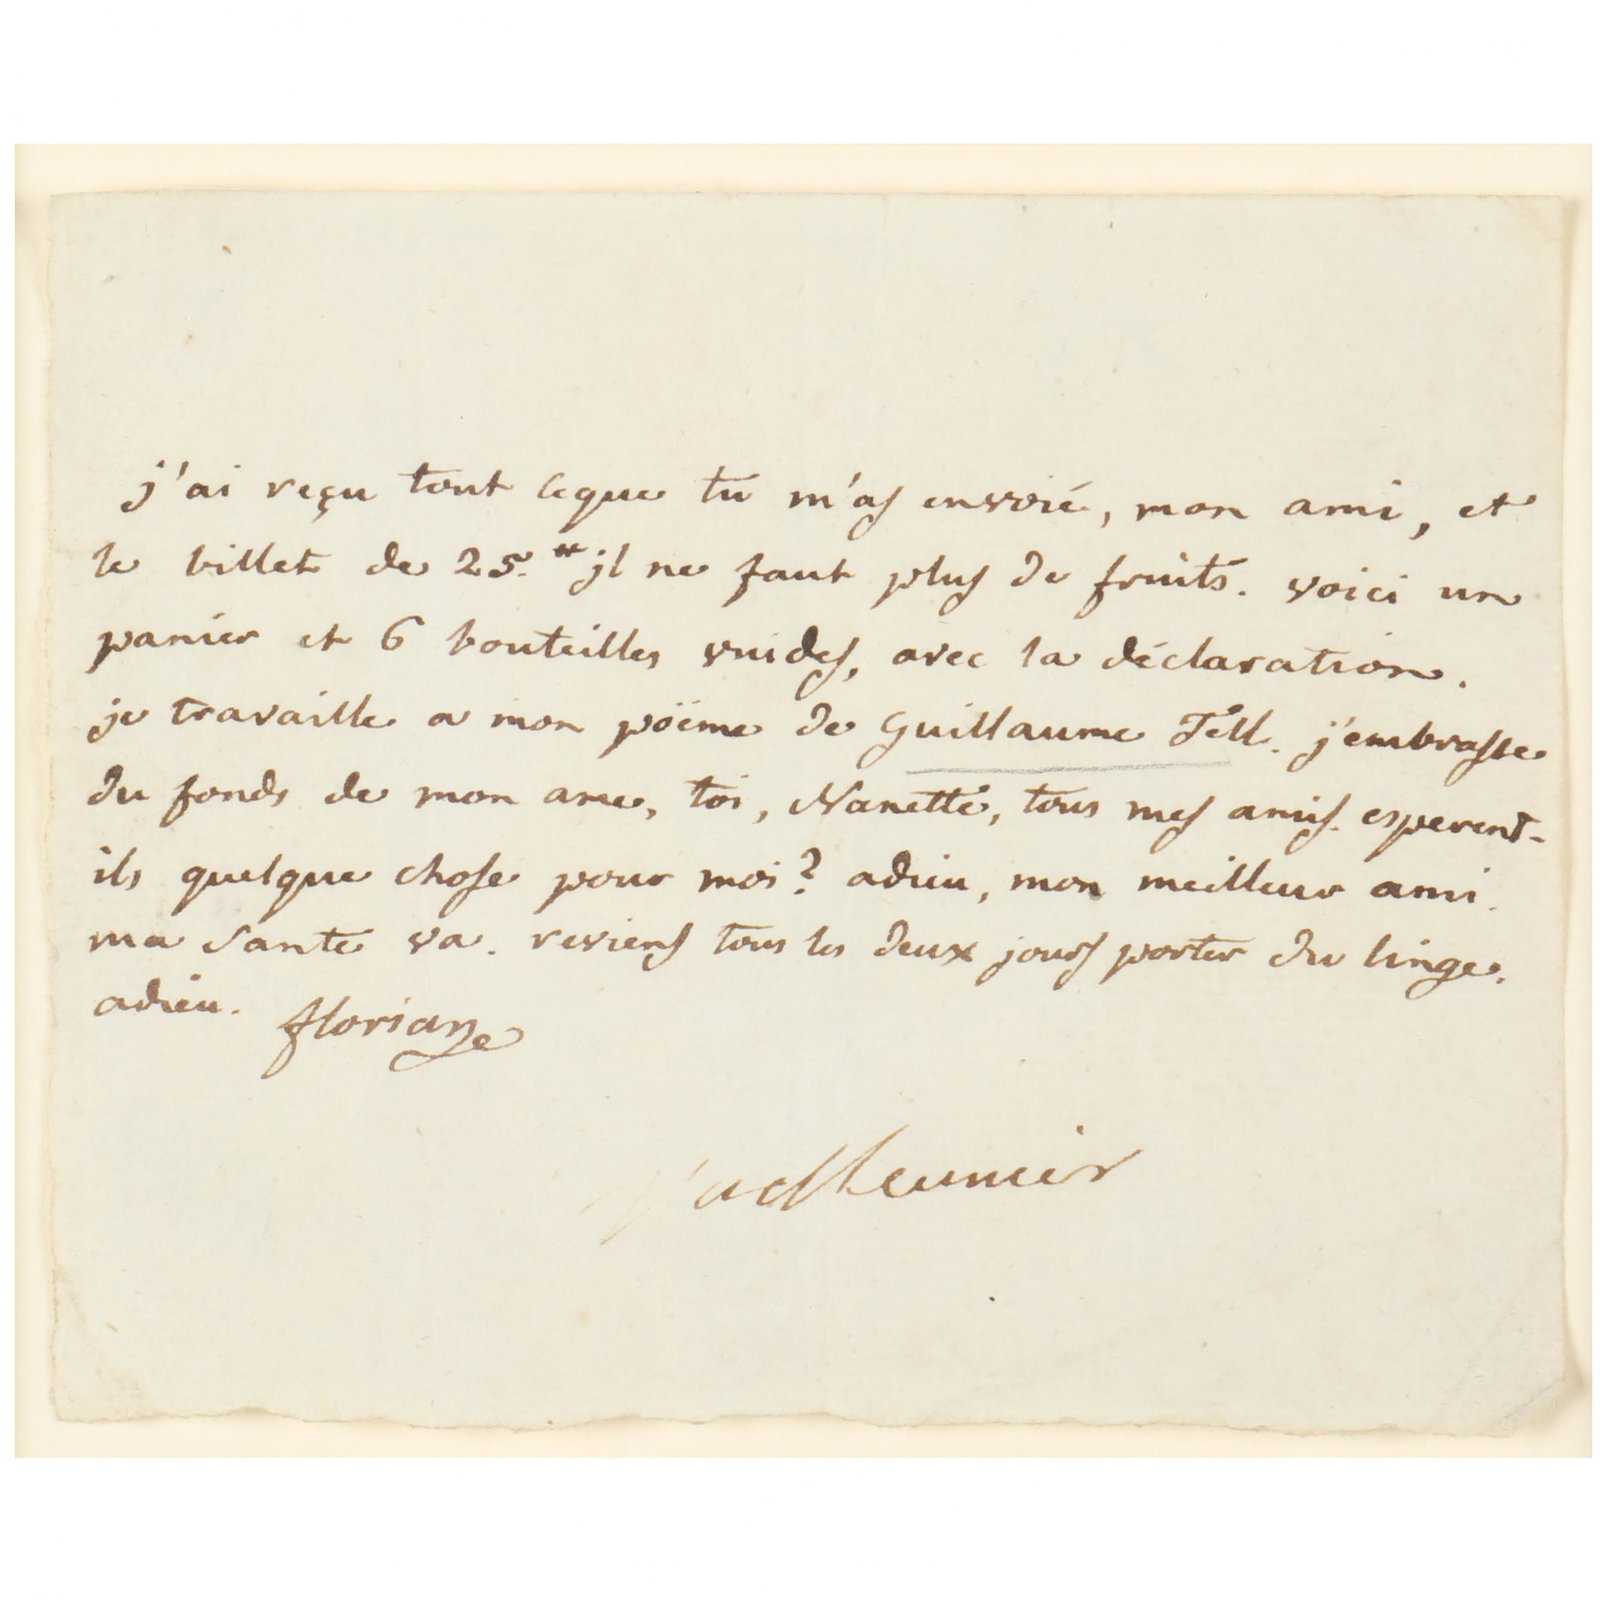 j'ai reçu tout ceque tu m'as envoié, mon ami, et
le billet de 25.# jl ne faut plus de fruits. voici un
panier et 6 bouteilles vuides, avec la déclaration.
je travaille a mon pöëme de Guillaume Tell. j'embrasse
du fonds de mon ame, toi, Nanette, tous mes amis. esperent-
ils quelque chose pour moi? adieu, mon meilleur ami.
ma santé va. reviens tous les deux jours porter du linge.
adieu. florian